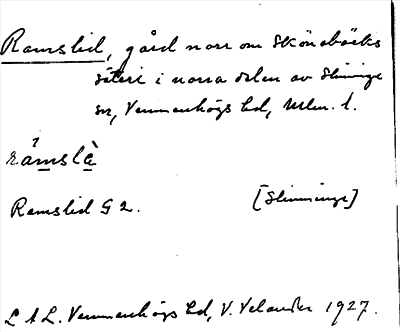 Ramslid, gård norr om Skönabäcks
säteri i norra delen av Slimminge
sn, Vemmenhögs hd, Mlm. l.
råmslà
Ramslid G 2. [Slimminge]
L A L. Vemmenhögs hd, V. Velander 1927.